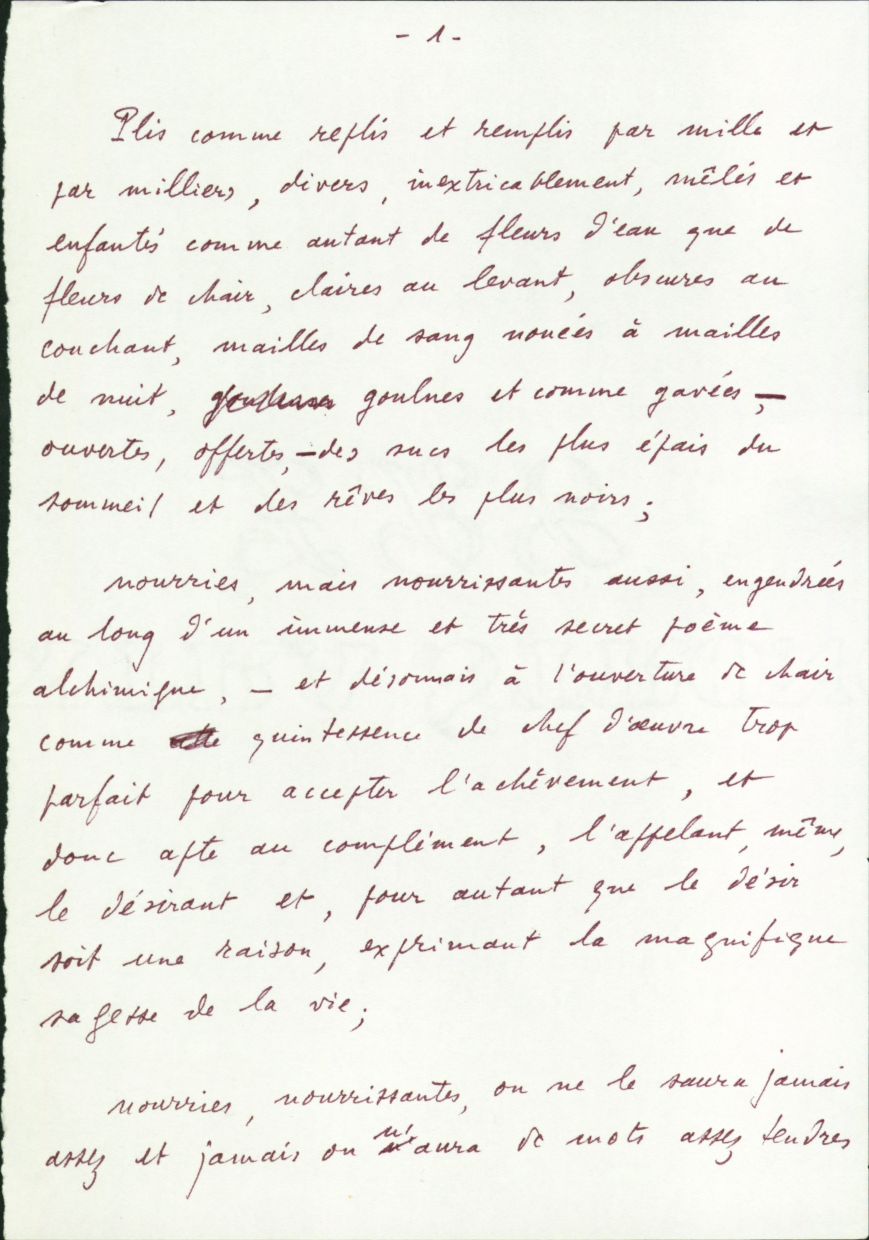 - 1 -
Plis comme replis et remplis par mille et
par milliers, divers, inextricablement, mêlés et
enfantés comme autant de fleurs d'eau que de
fleurs de chair, claires au levant, obscures au
couchant, mailles de sang nouées à mailles
de nuit, goulues et comme gavées, —
ouvertes, offertes, — des sucs les plus épais du
sommeil et des rêves les plus noirs ;
nourries, mais nourrissantes aussi, engendrées
au long d'un immense et très secret poème
alchimique, — et désormais à l'ouverture de chair
comme quintessence de chef d'œuvre trop
parfait pour accepter l'achèvement, et
donc apte au complément, l'appelant, même,
le désirant et, pour autant que le désir
soit une raison, exprimant la magnifique
sagesse de la vie ;
nourries, nourrissantes, on ne le saura jamais
assez et jamais on n'aura de mots assez tendres